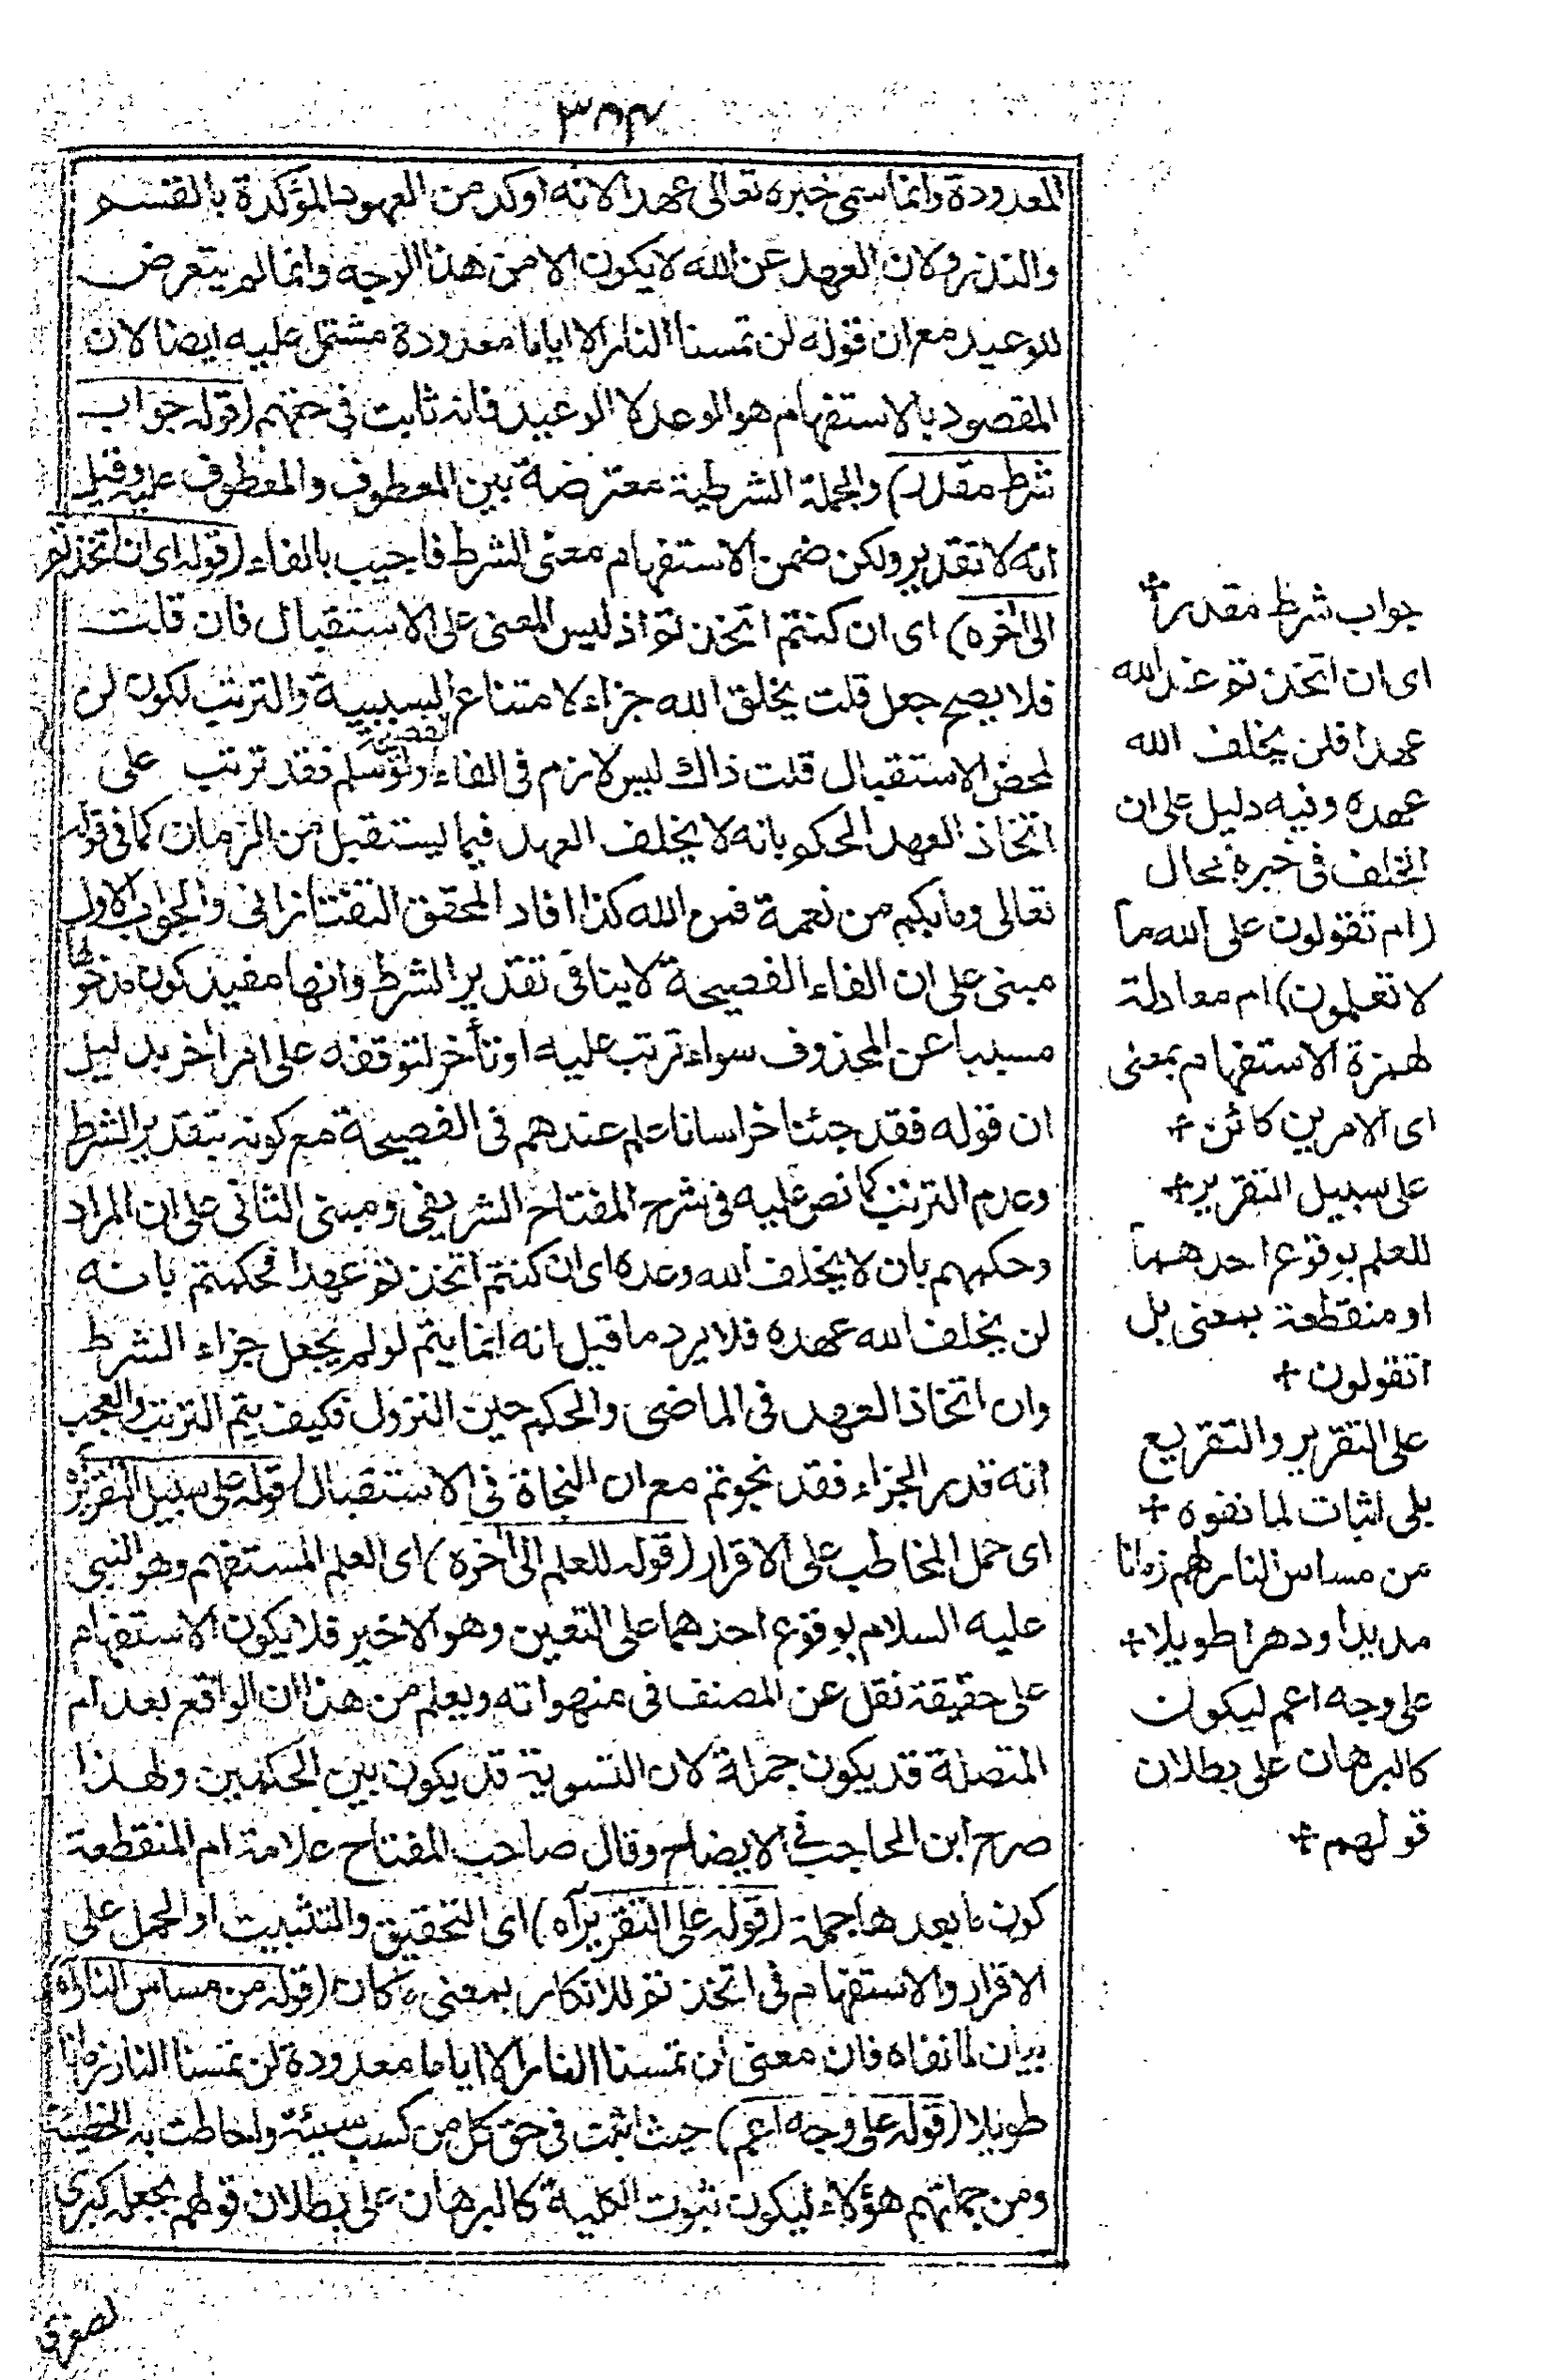 ٣٨٤
المعدودة وانما سمى خبره تعالى عهدا لانه اوكد من العهود المؤكدة بالقسم
والنذر ولان العهد عن الله لا يكون الا من هذا الوجه وانما لم يتعرض
للوعيد مع ان قوله لن تمسنا النار الا اياما معدودة مشتمل عليه ايضا لان
المقصود بالاستفهام هو الوعد لا الوعيد فانه ثابت فى حقهم (قوله جواب
شرط مقدر) والجملة الشرطية معترضة بين المعطوف والمعطوف عليه وقيل
انه لا تقدير ولكن ضمن الاستفهام معنى الشرط فاجيب بالفاء (قوله اى ان اتخذتم
الى آخره) اى ان كنتم اتخذتم اذ ليس المعنى على الاستقبال فان قلت
فلا يصح جعل قلت يخلق الله جزاء لامتناع السببية والترتب لكون لن
لمحض الاستقبال قلت ذاك ليس لازم فى الفاء الفصيحة ولو سلم فقد ترتب على
اتخاذ العهد الحكم بانه لا يخلف العهد فيما يستقبل من الزمان كما فى قوله
تعالى وما بكم من نعمة فمن الله كذا افاد المحقق التفتازانى والجواب الاول
مبنى على ان الفاء الفصيحة لا ينافى تقدير الشرط وانها مفيد كون مدخولها
مسببا عن المحذوف سواء ترتب عليه او تأخر لتوقفه على امر آخر بدليل
ان قوله فقد جئنا خراسانا علم عندهم فى الفصيحة مع كونه بتقدير الشرط
وعدم الترتب كما نص عليه فى شرح المفتاح الشريفى ومبنى الثانى على ان المراد
وحكمهم بان لا يخلف الله وعده اى ان كنتم اتخذتم عهدا فحكمتم بانه
لن يخلف الله عهده فلا يرد ما قيل انه انما يتم لو لم يجعل جزاء الشرط
وان اتخاذ العهد فى الماضى والحكم حين النزول فكيف يتم الترتب والعجب
انه قدر الجزاء فقد نجوتم مع ان النجاة فى الاستقبال (قوله على سبيل التقرير
اى حمل المخاطب على الاقرار (قوله للعلم الى آخره) اى العلم المستفهم وهو النبى
عليه السلام بوقوع احدهما على التعين وهو الاخير فلا يكون الاستفهام
على حقيقة نقل عن المصنف فى منهواته ويعلم من هذا ان الواقع بعد ام
المتصلة قد يكون جملة لان التسوية قد يكون بين الحكمين ولهذا
صرح ابن الحاجب فى الايضاح وقال صاحب المفتاح علامة ام المنقطعة
كون ما بعدها جملة (قوله على التقرير آه) اى التحقيق والتثبيت او الحمل على
الاقرار والاستفهام فى اتخذتم للانكار بمعنى ما كان (قوله من مساس النار آه
بيان لما نفاه فان معنى لن تمسنا النار الا اياما معدودة لن تمسنا النار زمانا
طويلا (قوله على وجه اعم) حيث اثبت فى حق كل من كسب سيئة واحاطت به الخطيئة
ومن جملتهم هؤلاء ليكون ثبوت الكلية كالبرهان على بطلان قولهم بجعله كبرى
لصغرى
جواب شرط مقدر+
اى ان اتخذتم عند الله
عهدا فلن يخلف الله
عهده وفيه دليل على ان
الخلف فى خبره محال
(ام تقولون على الله ما
لا تعلمون) ام معادلة
لهمزة الاستفهام بمعنى
اى الامرين كائن+
على سبيل التقرير+
للعلم بوقوع احدهما
او منقطعة بمعنى بل
اتقولون+
على التقرير والتقريع
بلى اثبات لما نفوه+
من مساس النار لهم زمانا
مديدا ودهرا طويلا+
على وجه اعم ليكون
كالبرهان على بطلان
قولهم+